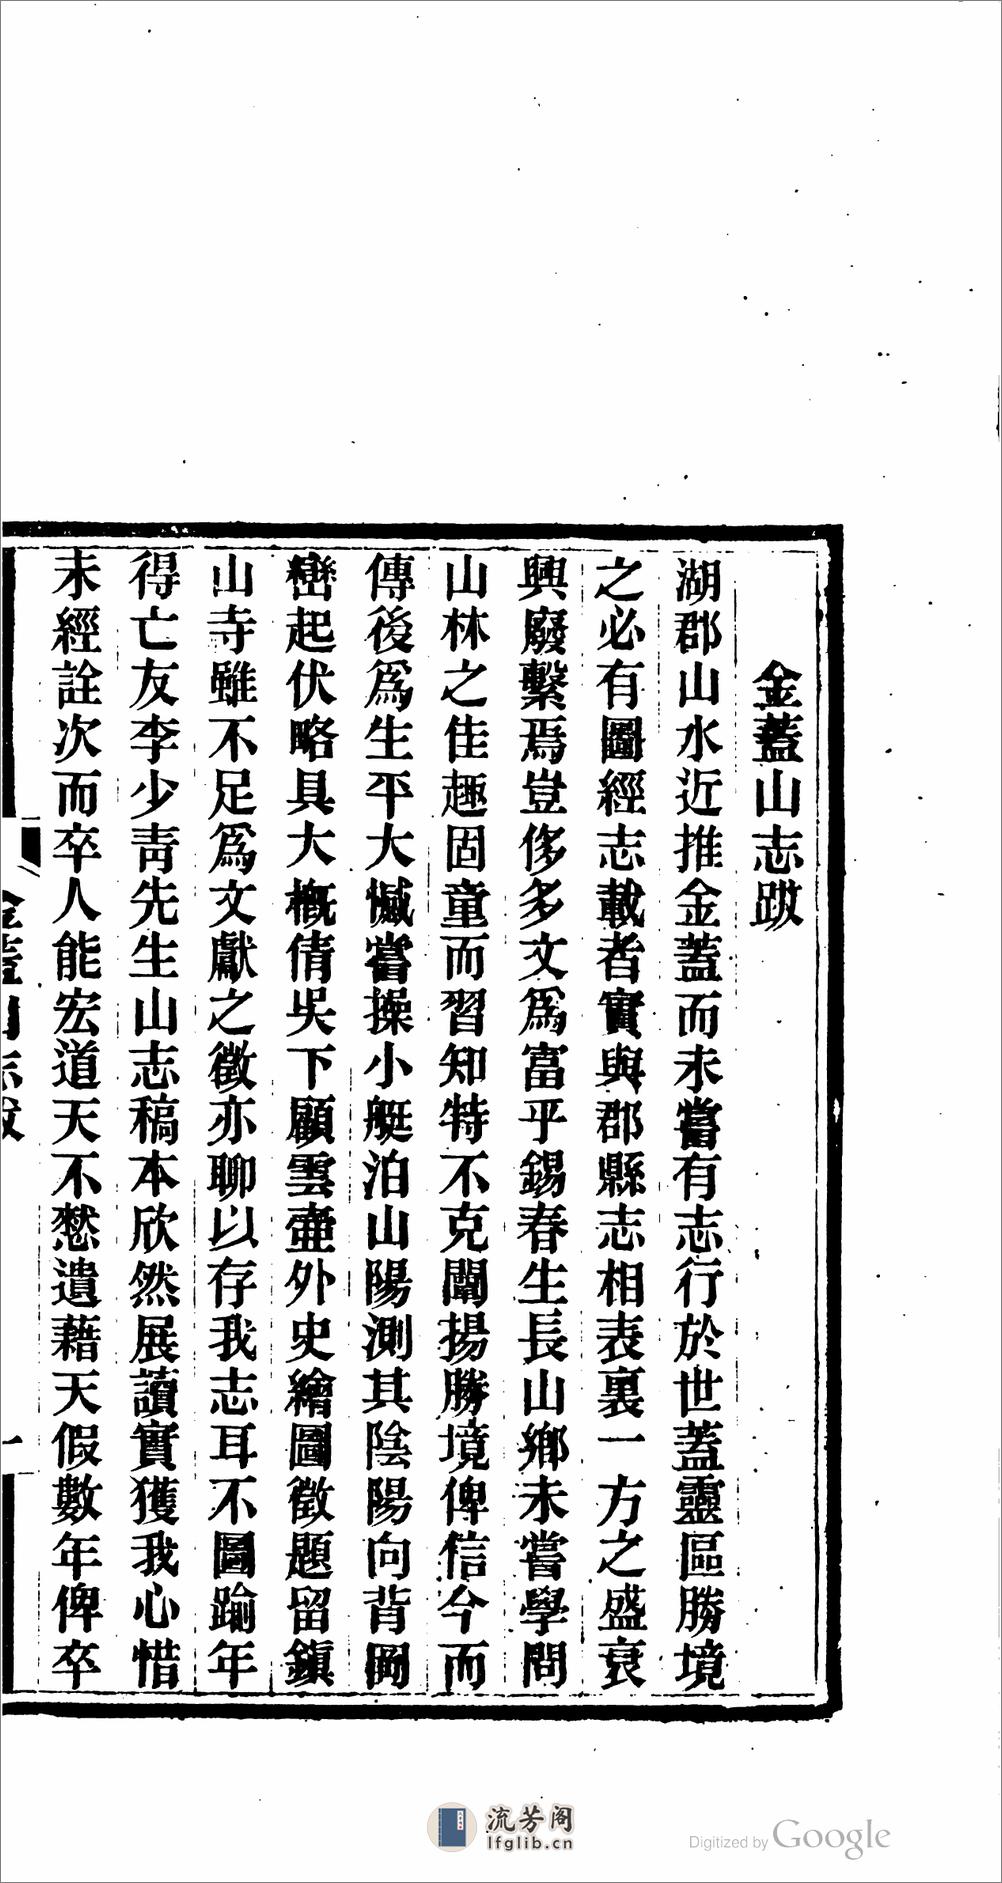 金蓋山志跋
湖郡山水近推金蓋而未嘗有志行於世蓋靈區勝境
之必有圖經志載者實與郡縣志相表裏一方之盛衰
興廢繫焉豈侈多文爲富乎錫春生長山鄉未嘗學問
山林之佳趣固童而習知特不克闡揚勝境俾信今而
傳後爲生平大憾嘗操小艇泊山陽測其陰陽向背岡
巒起伏略具大槪倩吳下顧雲壺外史繪圖徵題留鎭
山寺雖不足爲文獻之徵亦聊以存我志耳不圖踰年
得亡友李少靑先生山志稿本欣然展讀實獲我心惜
未經詮次而卒人能宏道天不憖遺藉天假數年俾卒
金蓋山志跋
一
流芳阁
lfglib.cn
Digitized by Google